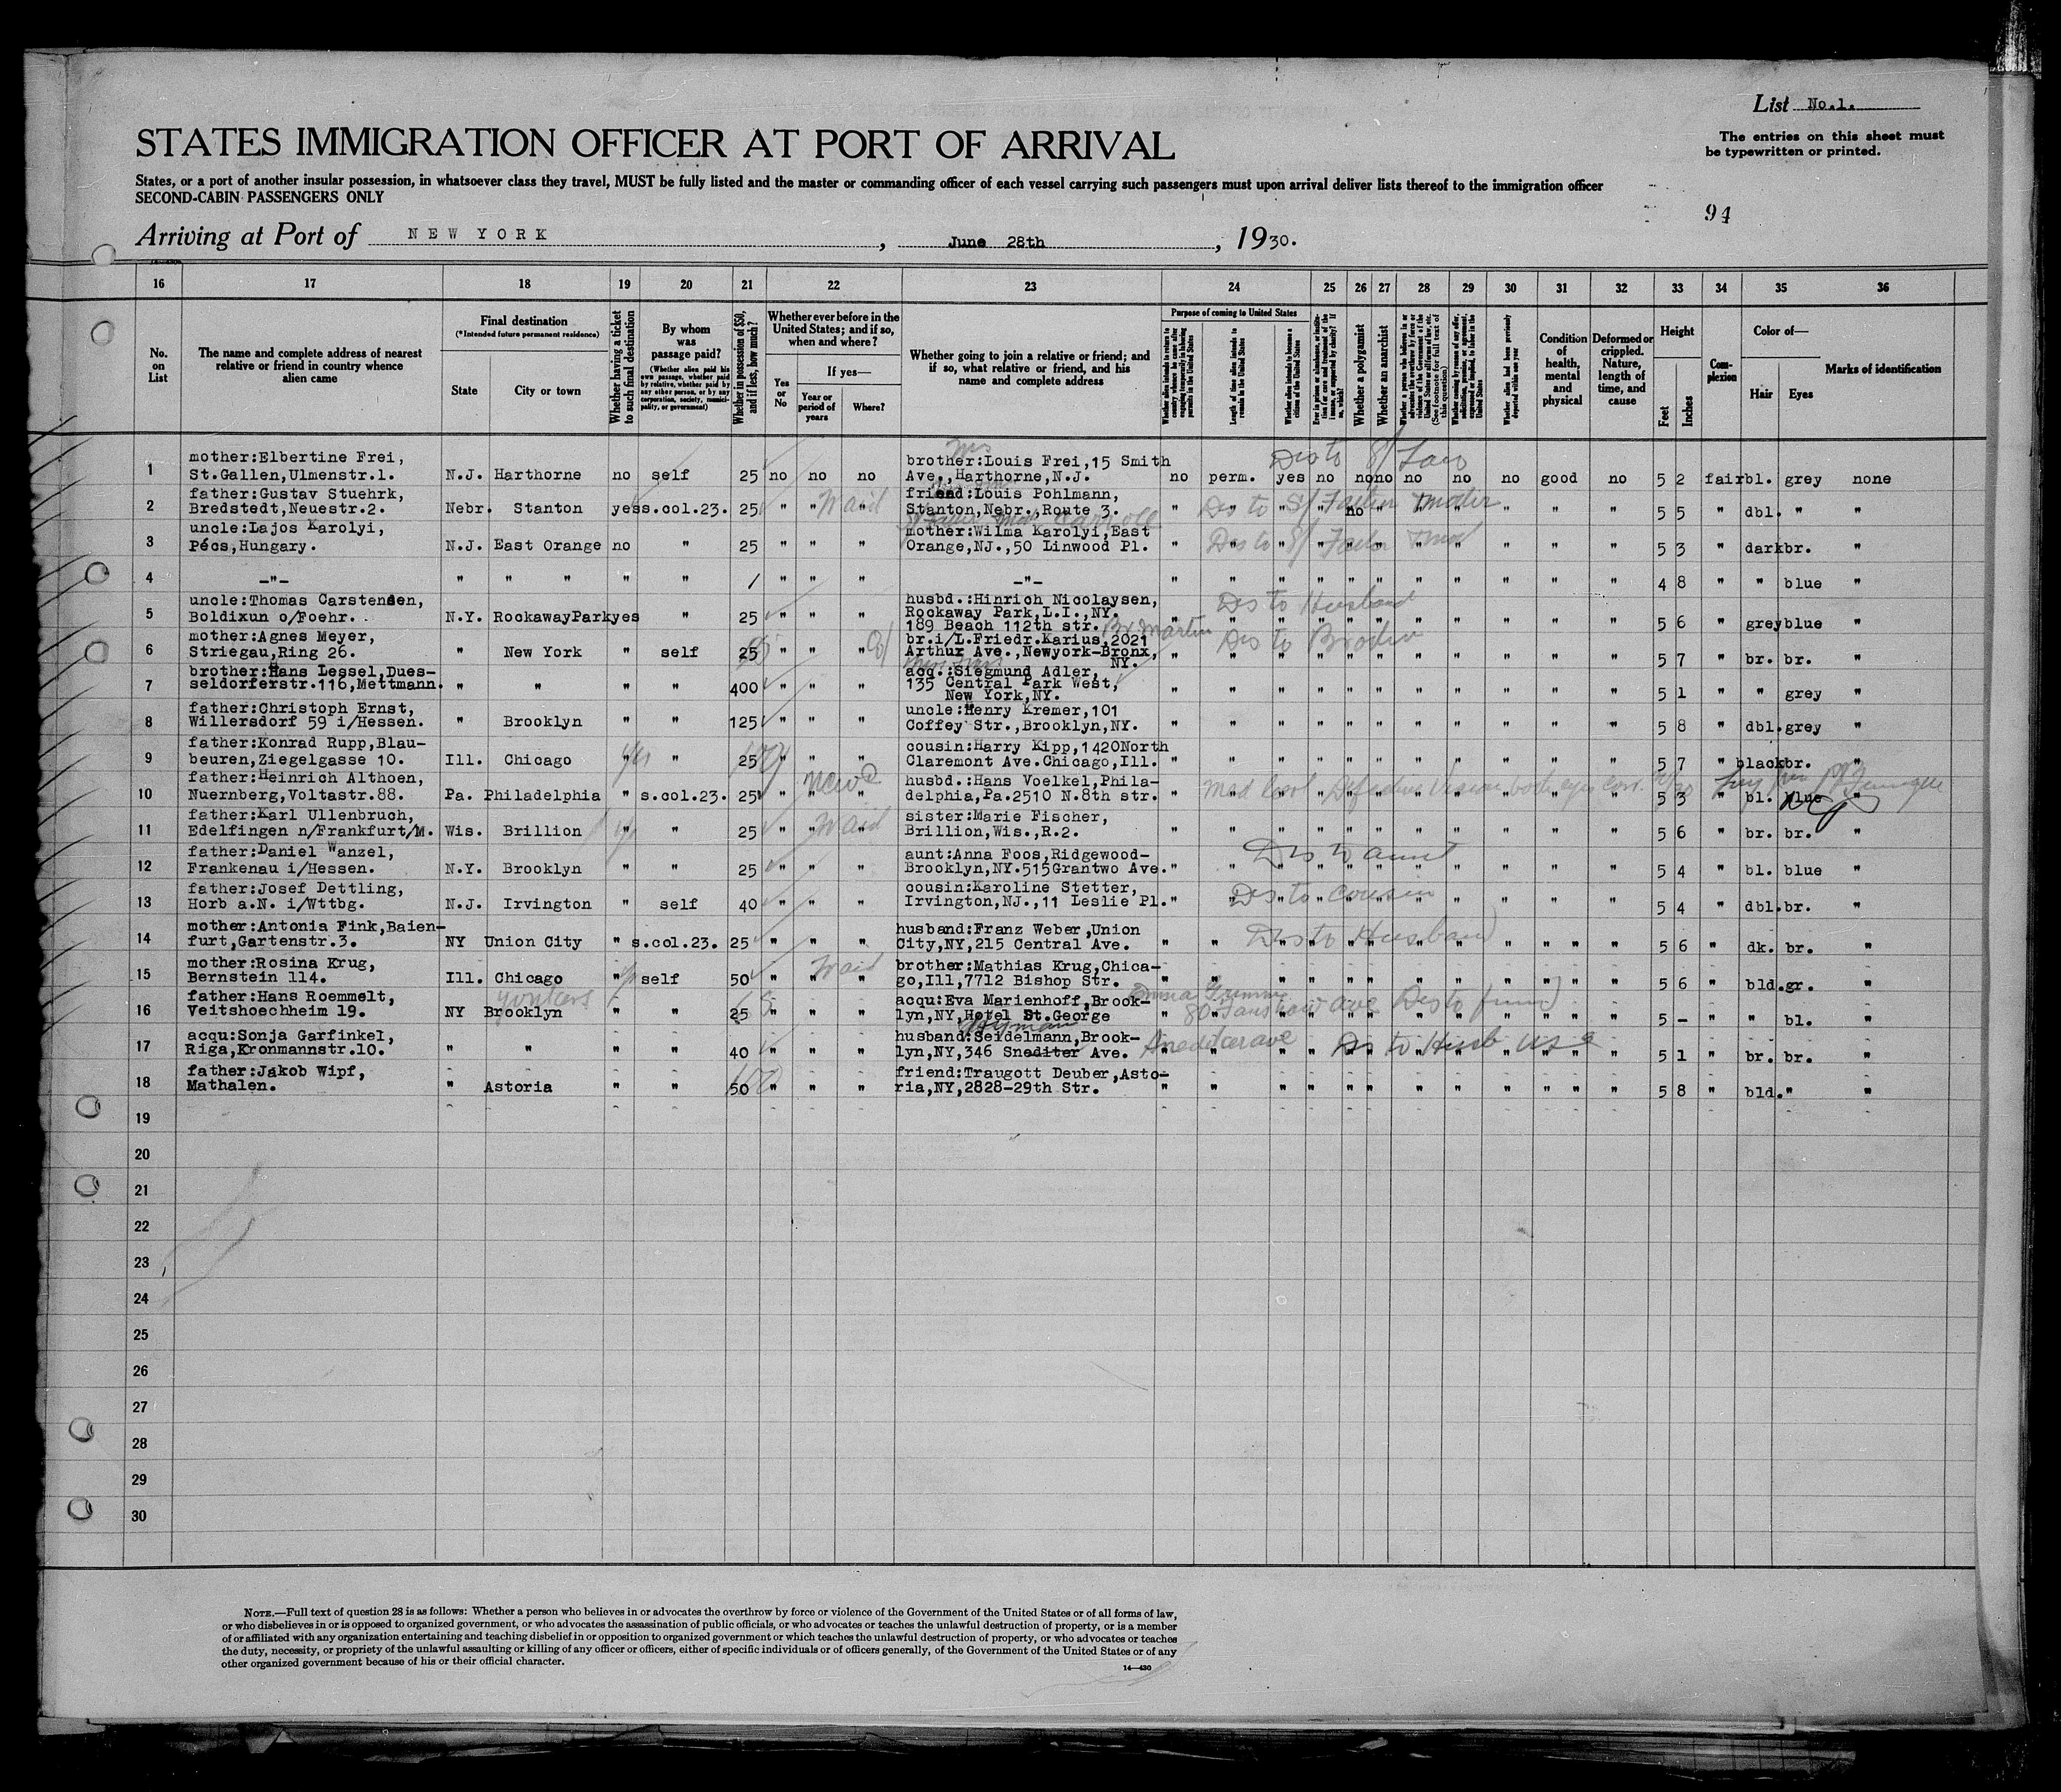 List No.1.
The entries on this sheet must
be typewritten or printed.
STATES IMMIGRATION OFFICER AT PORT OF ARRIVAL
States, or a port of another insular possession, in whatsoever class they travel, MUST be fully listed and the master or commanding officer of each vessel carrying such passengers must upon arrival deliver lists thereof to the immigration officer
SECOND-CABIN PASSENGERS ONLY
94
Arriving at Port of NEW YORK, June 28th, 1930.
16 17 18 19 20 21 22 23 24 25 26 27 28 29 30 31 32 33 34 35 36
No. on List
The name and complete address of nearest relative or friend in country whence alien came
Final destination
(*Intended future permanent residence)
State
City or town
Whether having a ticket to such final destination
By whom was passage paid?
(Whether alien paid his own passage, whether paid by relative, whether paid by any other person, or by any corporation, society, municipality, or government)
Whether in possession of $50, and if less, how much?
Whether ever before in the United States; and if so, when and where?
Yes or No
If yes—
Year or period of years
Where?
Whether going to join a relative or friend; and if so, what relative or friend, and his name and complete address
Purpose of coming to United States
Length of time alien intends to remain in the United States
Whether alien intends to become a citizen of the United States
Whether a polygamist
Whether an anarchist
Condition of health, mental and physical
Deformed or crippled. Nature, length of time, and cause
Height
Feet
Inches
Complexion
Color of—
Hair
Eyes
Marks of identification
1 mother:Elbertine Frei, brother:Louis Frei,15 Smith
St.Gallen,Ulmenstr.1. N.J. Harthorne no self 25 no no no Ave.,Harthorne,N.J. no perm. yes no no no no no no good no 5 2 fair bl. grey none
2 father:Gustav Stuehrk, friend:Louis Pohlmann,
Bredstedt,Neuestr.2. Nebr. Stanton yes s.col.23. 25 " " " Stanton,Nebr.,Route 3. " " " " no " " " " " " 5 5 " dbl. " "
Maid
Des to
3 uncle:Lajos Karolyi, mother:Wilma Karolyi,East
Pécs,Hungary. N.J. East Orange no " 25 " " " Orange,NJ.,50 Linwood Pl. " " " " " " " " " " " 5 3 " dark br. "
4 -"- " " " " " / " " " -"- " " " " " " " " " " " 4 8 " " blue "
5 uncle:Thomas Carstensen, husbd.:Hinrich Nicolaysen,
Boldixun o/Foehr. N.Y. RockawayPark yes " 25 " " " Rockaway Park,L.I.,NY.
189 Beach 112th str. " " " " " " " " " " " 5 6 " grey blue "
Des to Husband
6 mother:Agnes Meyer, br.i/L.Friedr.Karius,2021
Striegau,Ring 26. " New York " self 25 " " " Arthur Ave.,Newyork-Bronx,
NY. " " " " " " " " " " " 5 7 " br. br. "
Martin
Des to Brother
7 brother:Hans Lessel,Dues- acq.:Siegmund Adler,
seldorferstr.116,Mettmann. " " " " 400 " " " 135 Central Park West,
New York,NY. " " " " " " " " " " " 5 1 " " grey "
8 father:Christoph Ernst, uncle:Henry Kremer,101
Willersdorf 59 i/Hessen. " Brooklyn " " 125 " " " Coffey Str.,Brooklyn,NY. " " " " " " " " " " " 5 8 " dbl. grey "
9 father:Konrad Rupp,Blau- cousin:Harry Kipp,1420North
beuren,Ziegelgasse 10. Ill. Chicago " 25 " " " Claremont Ave.Chicago,Ill. " " " " " " " " " " " 5 7 " black br. "
10 father:Heinrich Althoen, husbd.:Hans Voelkel,Phila-
Nuernberg,Voltastr.88. Pa. Philadelphia " s.col.23. 25 " " " delphia,Pa.2510 N.8th str. " 5 3 " bl. blue "
Defective Vision both eyes
11 father:Karl Ullenbruch, sister:Marie Fischer,
Edelfingen n/Frankfurt/M. Wis. Brillion " " 25 " " " Brillion,Wis.,R.2. " " " " " " " " " " " 5 6 " br. br. "
Maid
12 father:Daniel Wanzel, aunt:Anna Foos,Ridgewood-
Frankenau i/Hessen. N.Y. Brooklyn " " 25 " " " Brooklyn,NY.515Grantwo Ave. " " " " " " " " " " " 5 4 " bl. blue "
Des to aunt
13 father:Josef Dettling, cousin:Karoline Stetter,
Horb a.N. i/Wttbg. N.J. Irvington " self 40 " " " Irvington,NJ.,11 Leslie Pl. " " " " " " " " " " " 5 4 " dbl. br. "
Des to cousin
14 mother:Antonia Fink,Baien- husband:Franz Weber,Union
furt,Gartenstr.3. NY Union City " s.col.23. 25 " " " City,NY,215 Central Ave. " " " " " " " " " " " 5 6 " dk. br. "
Des to Husband
15 mother:Rosina Krug, brother:Mathias Krug,Chica-
Bernstein 114. Ill. Chicago " self 50 " " " go,Ill,7712 Bishop Str. " " " " " " " " " " " 5 6 " bld. gr. "
Maid
16 father:Hans Roemmelt, acqu:Eva Marienhoff,Brook-
Veitshoechheim 19. NY Brooklyn " " 25 " " " lyn,NY,Hotel St.George " " " " " " " " " " " 5 - " " bl. "
Yonkers
17 acqu:Sonja Garfinkel, husband:Seidelmann,Brook-
Riga,Kronmannstr.10. " " " " 40 " " " lyn,NY,346 Snediter Ave. " " " " " " " " " " " 5 1 " br. br. "
Hyman
18 father:Jakob Wipf, friend:Traugott Deuber,Asto-
Mathalen. " Astoria " " 50 " " " ria,NY,2828-29th Str. " " " " " " " " " " " 5 8 " bld. " "
19
20
21
22
23
24
25
26
27
28
29
30
NOTE.—Full text of question 28 is as follows: Whether a person who believes in or advocates the overthrow by force or violence of the Government of the United States or of all forms of law,
or who disbelieves in or is opposed to organized government, or who advocates the assassination of public officials, or who advocates or teaches the unlawful destruction of property, or is a member
of or affiliated with any organization entertaining and teaching disbelief in or opposition to organized government or which teaches the unlawful destruction of property, or who advocates or teaches
the duty, necessity, or propriety of the unlawful assaulting or killing of any officer or officers, either of specific individuals or of officers generally, of the Government of the United States or of any
other organized government because of his or their official character.
14—430